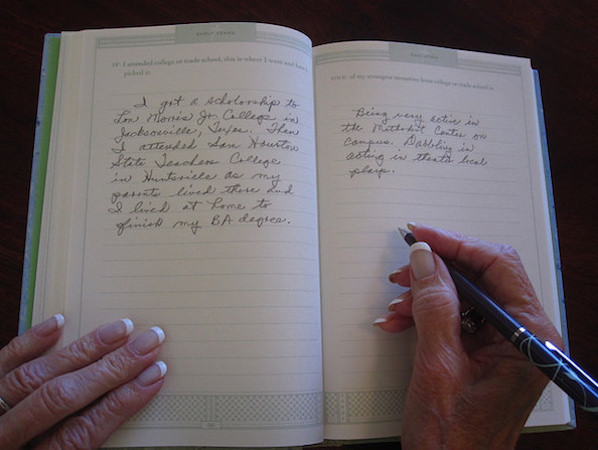 EARLY YEARS
IF I attended college or trade school, this is where I went and how I
picked it:
I got a scholorship to
Lon Morris Jr. College in
Jacksonville, Texas. Then
I attended Sam Houston
State Teachers College
in Huntsville as my
parents lived there and
I lived at home to
finish my BA degree.
of my strongest memories from college or trade school is:
Being very active in
the Methodist Center on
campus. Dabbling in
acting in theater local
plays.